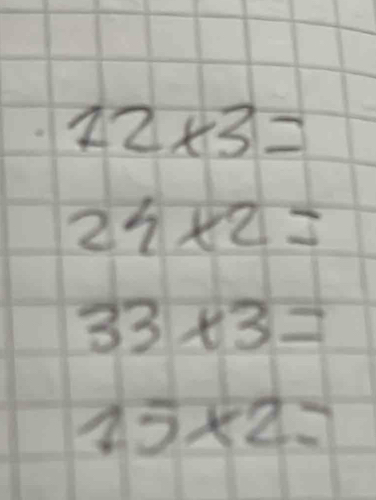 12×3=
24×2=
33×3=
15×2=